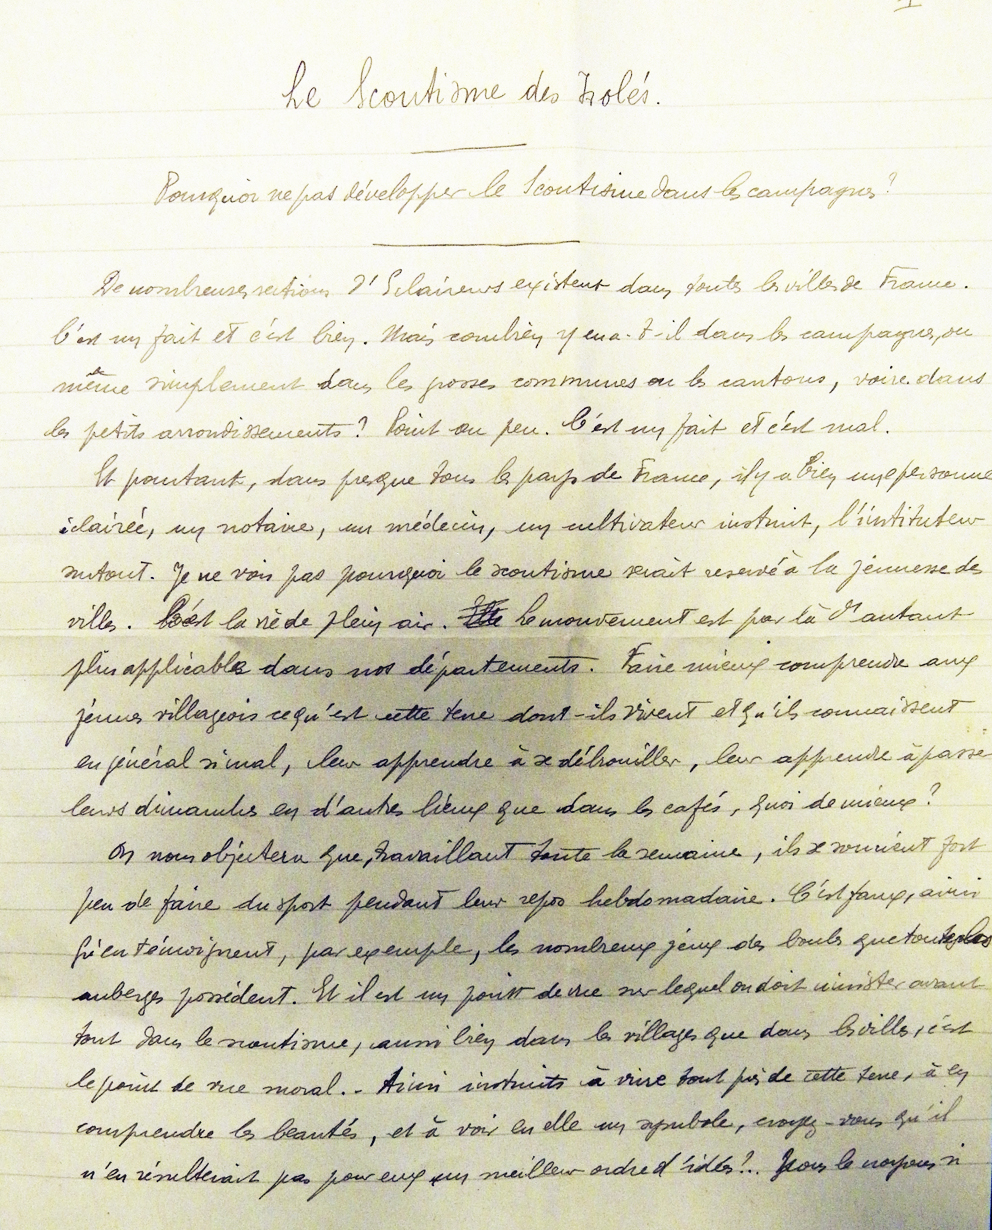 Le Scoutisme des Isolés.
Pourquoi ne pas développer le Scoutisme dans les campagnes?
De nombreuses sections d'Eclaireurs existent dans toutes les villes de France.
C'est un fait et c'est bien. Mais combien y en a-t-il dans les campagnes, ou
même simplement dans les grosses communes ou les cantons, voire dans
les petits arrondissements? Point ou peu. C'est un fait et c'est mal.
Et pourtant, dans presque tous les pays de France, il y a bien une personne
éclairée, un notaire, un médecin, un cultivateur instruit, l'instituteur
surtout. Je ne vois pas pourquoi le scoutisme serait reservé à la jeunesse des
villes. C'est la vie de plein air. Le mouvement est par là d'autant
plus applicable dans nos départements. Faire mieux comprendre aux
jeunes villageois ce qu'est cette terre dont-ils vivent et qu'ils connaissent
en général si mal, leur apprendre à se débrouiller, leur apprendre à passer
leurs dimanches en d'autres lieux que dans les cafés, quoi de mieux?
On nous objectera que, travaillant toute la semaine, ils se soucient fort
peu de faire du sport pendant leur repos hebdomadaire. C'est faux, ainsi
qu'en témoignent, par exemple, les nombreux jeux des boules que toutes les
auberges possèdent. Et il est un point de vue sur lequel on doit insister avant
tout dans le scoutisme, aussi bien dans les villages que dans les villes, c'est
le point de vue moral.- Ainsi instruits à vivre tout près de cette terre, à en
comprendre les beautés, et à voir en elle un symbole, croyez-vous qu'il
n'en résulterait pas pour eux un meilleur ordre d'idées?.. Nous le croyons si